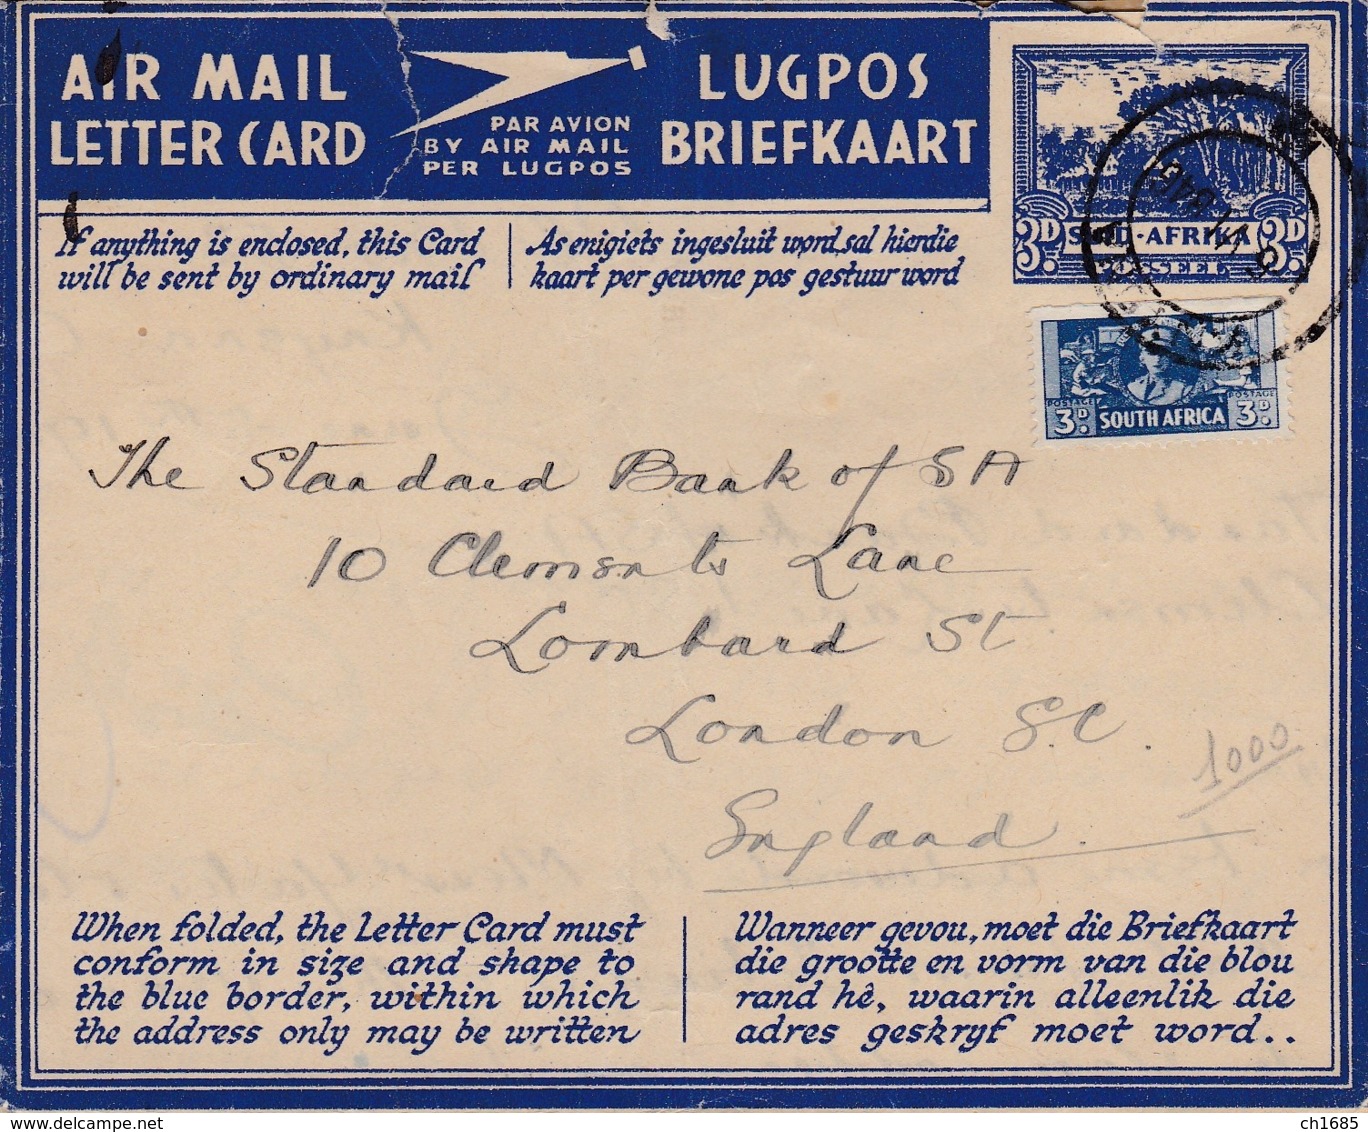 AIR MAIL
LETTER CARD
PAR AVION
BY AIR MAIL
PER LUGPOS
LUGPOS
BRIEFKAART
3D SUID-AFRIKA 3D
SEEL
If anything is enclosed, this Card
will be sent by ordinary mail
As enigiets ingesluit word, sal hierdie
kaart per gewone pos gestuur word
POSTAGE POSTAGE
3D SOUTH AFRICA 3D
The Standard Bank of SA
10 Clements Lane
Lombard St
London
England
1000
When folded, the Letter Card must
conform in size and shape to
the blue border, within which
the address only may be written
Wanneer gevou, moet die Briefkaart
die grootte en vorm van die blou
rand hê, waarin alleenlik die
adres geskryf moet word..
ch1685